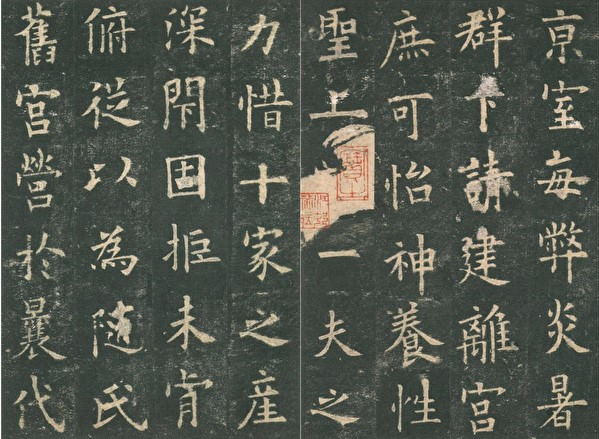 亰室每弊炎暑
群下請建離宮
庶可怡神養性
聖上一夫之
力惜十家之産
深閇固拒未肯
俯從以為隨氏
舊宮營於曩代